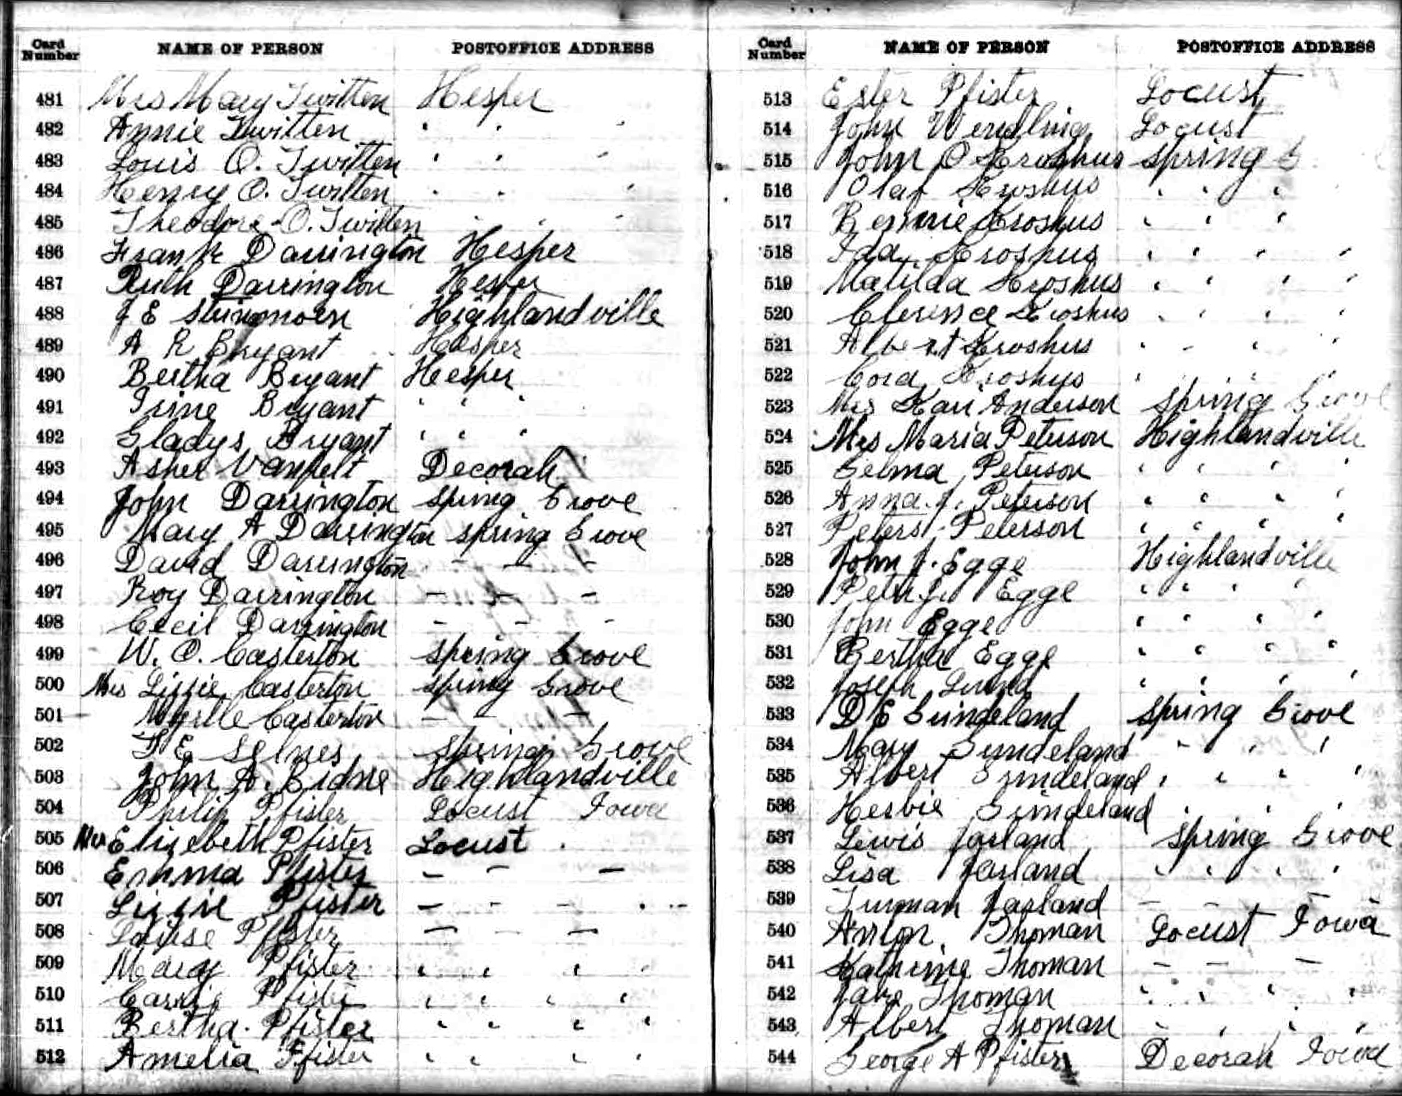 Card Number NAME OF PERSON POSTOFFICE ADDRESS
481 Mrs Mary Twitten Hesper
482 Annie Twitten " " "
483 Louis O. Twitten " " "
484 Henry O. Twitten " " "
485 Theodore O. Twitten " " "
486 Frank Darrington Hesper
487 Ruth Darrington Hesper
488 J E Highlandville
489 A R Bryant Hesper
490 Bertha Bryant Hesper
491 Irine Bryant " " "
492 Gladys Bryant " " "
493 Asher Vanpelt Decorah
494 John Darrington Spring Grove
495 Mary A Darrington Spring Grove
496 David Darrington - - -
497 Roy Darrington - - -
498 Cecil Darrington - - -
499 W. O. Casterton Spring Grove
500 Mrs Lizzie Casterton Spring Grove
501 Myrtle Casterton - - -
502 T E Selnes Spring Grove
503 John A. Eidne Highlandville
504 Philip Pfister Locust Iowa
505 Mrs Elizebeth Pfister Locust
506 Emma Pfister - - -
507 Lizzie Pfister - - - -
508 Louise Pfister - - -
509 Mary Pfister " " " "
510 Carrie Pfister " " " "
511 Bertha Pfister " " " "
512 Amelia Pfister " " " "
Card Number NAME OF PERSON POSTOFFICE ADDRESS
513 Ester Pfister Locust
514 John Wendling Locust
515 John O Kroshus Spring G
516 Olaf Kroshus " " "
517 Bennie Kroshus " " "
518 Ida Kroshus " " " "
519 Matilda Kroshus " " " "
520 Clerence Kroshus " " " "
521 Albert Kroshus " " " "
522 Cora Kroshus " " " "
523 Mrs Kari Anderson Spring Grove
524 Mrs Maria Peterson Highlandville
525 Selma Peterson " " " "
526 Anna J. Peterson " " " "
527 Peter Peterson " " " "
528 John J. Egge Highlandville
529 Egge " " " "
530 John Egge " " " "
531 Bertha Egge " " " "
532 Joseph " " " "
533 D E Sundeland Spring Grove
534 Mary Sundeland " " " "
535 Albert Sundeland " " " "
536 Herbie Sundeland " " " "
537 Lewis Jarland Spring Grove
538 Lisa Jarland " " " "
539 Jarland - - - -
540 Anton Thoman Locust Iowa
541 Katherine Thoman - - -
542 Jake Thoman " " " "
543 Albert Thoman " " " "
544 George A Pfister Decorah Iowa